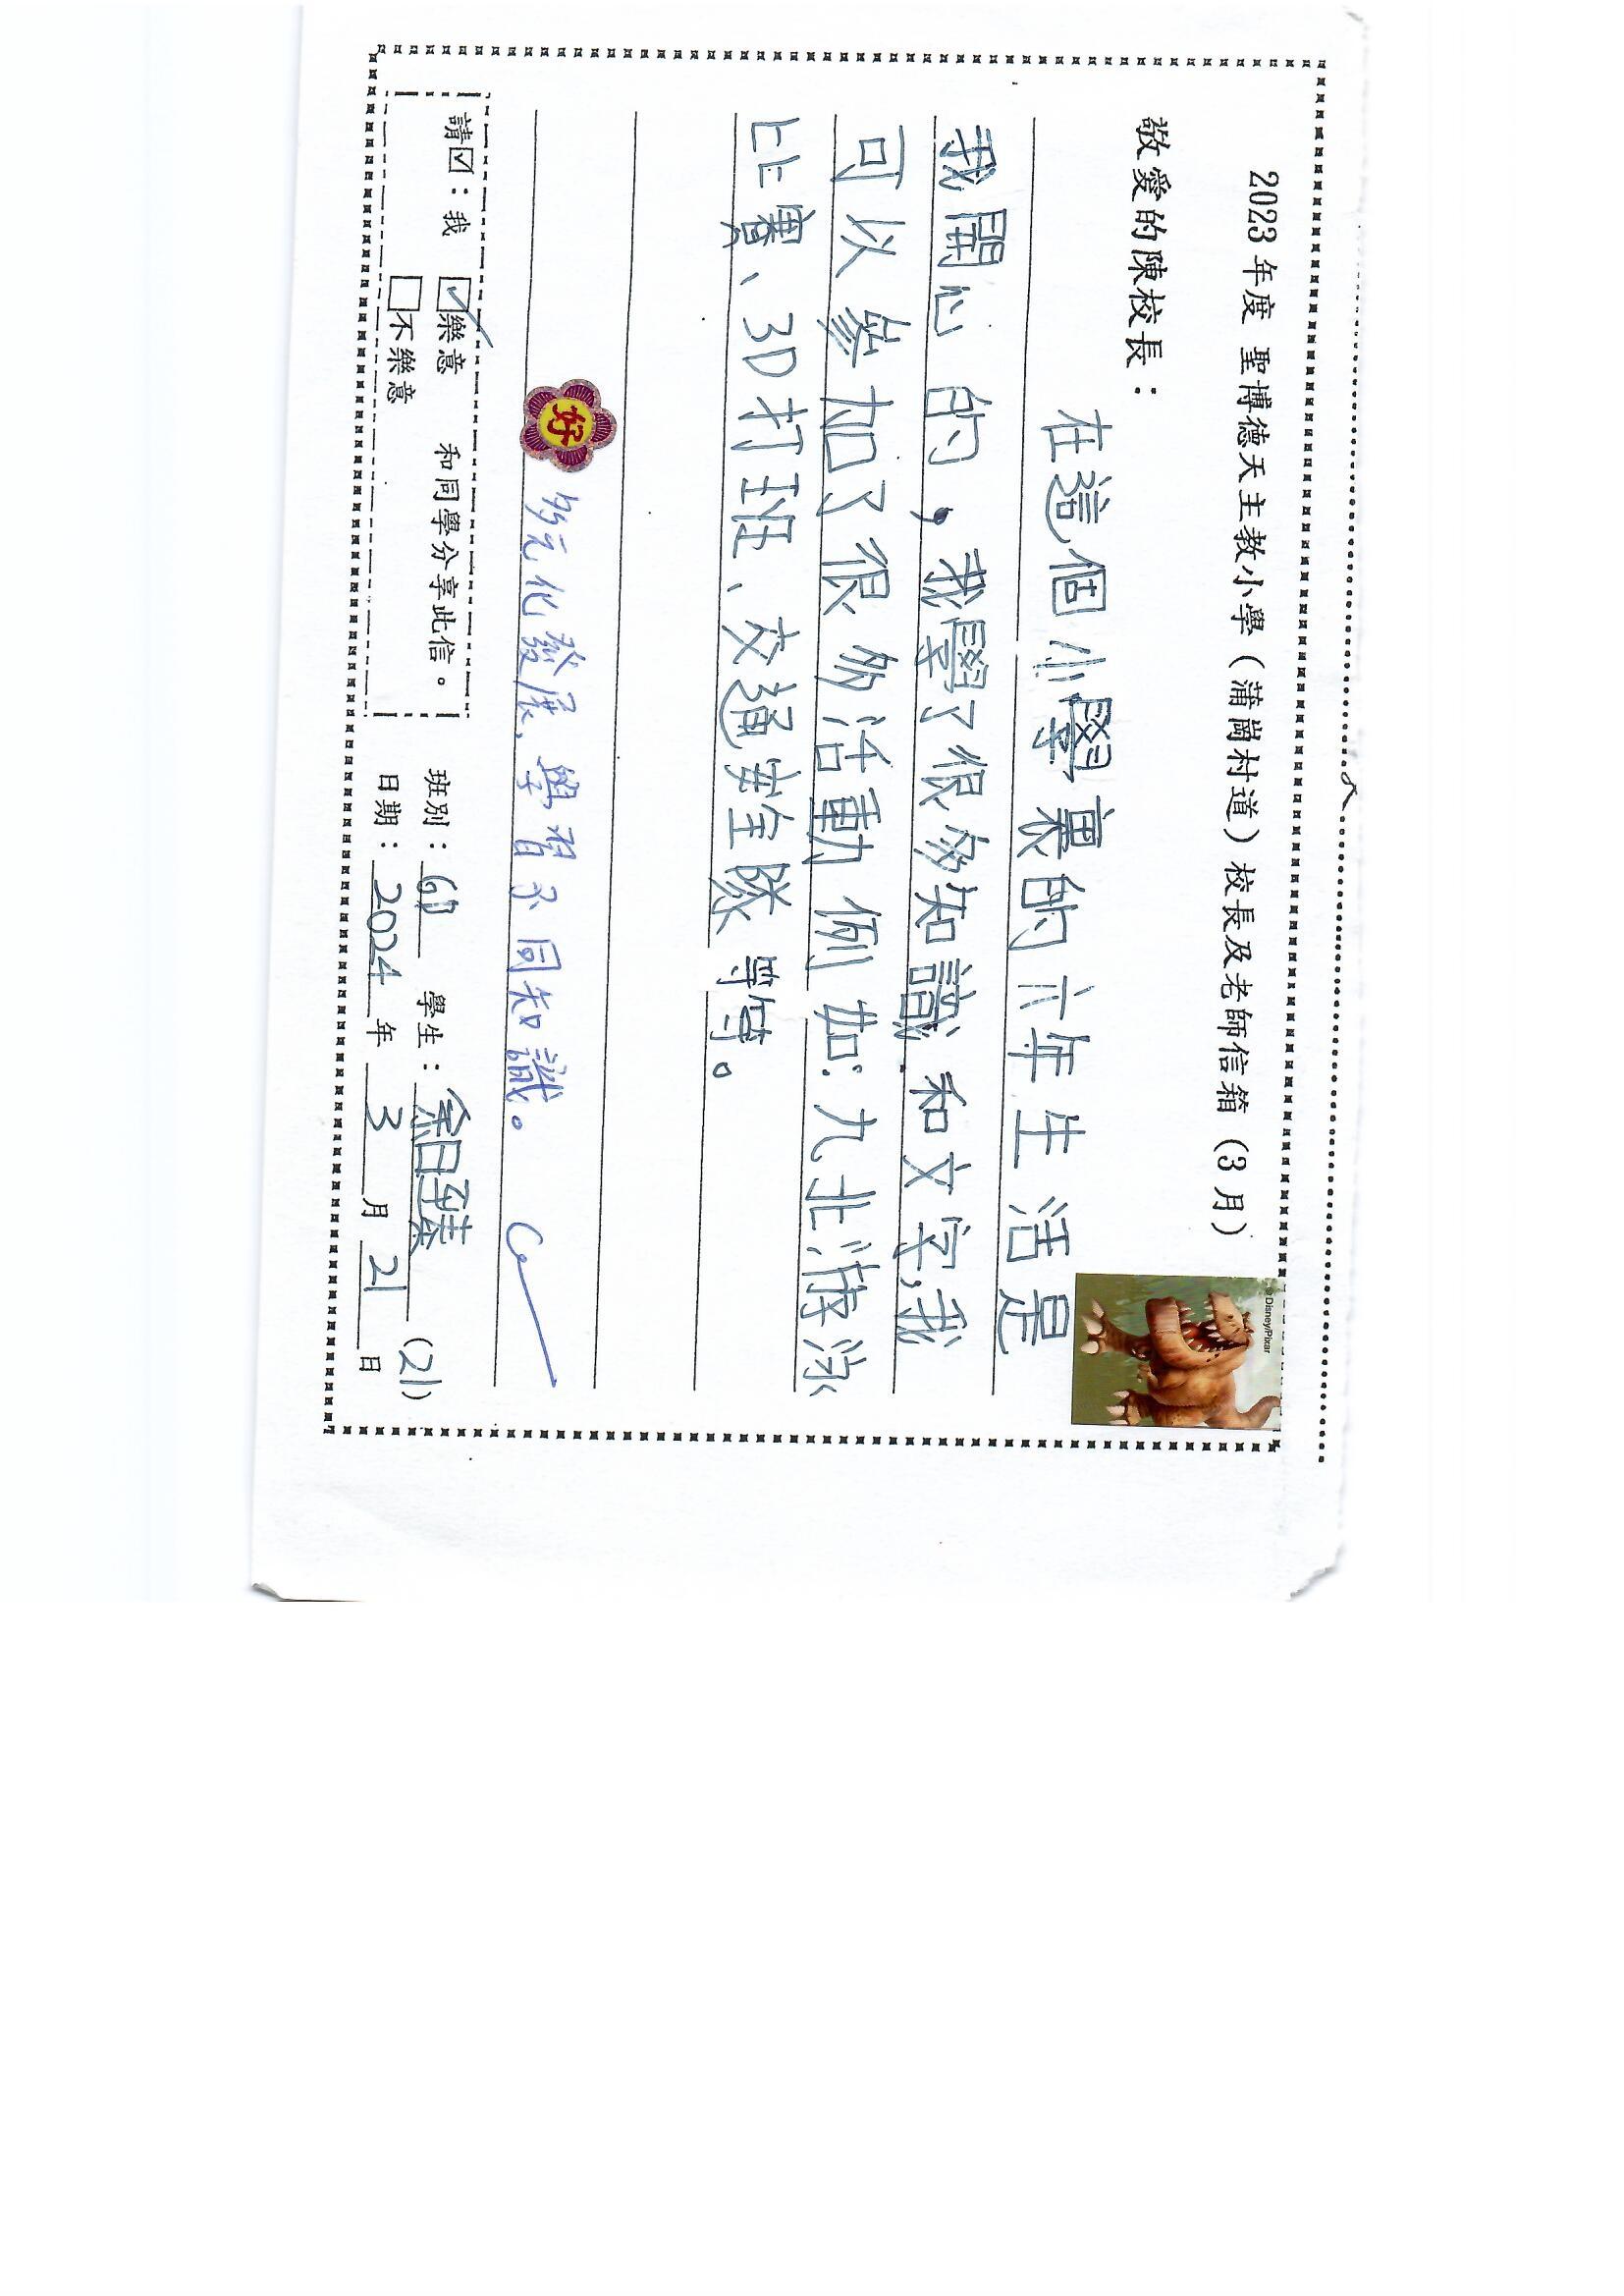 2023年度 聖博德天主教小學（蒲崗村道）校長及老師信箱（3月）
© Disney/Pixar
敬愛的陳校長：
在這個小學裏的六年生活是
我開心的，我學了很多知識和文字，我
可以參加了很多活動例如：九北游泳
比賽、3D打班、交通安全隊等等。
好
多元化發展，學習不同知識。
請☑：我 ☑樂意 和同學分享此信。
□不樂意
班別：6D 學生：余日臻 (21)
日期：2024年3月21日